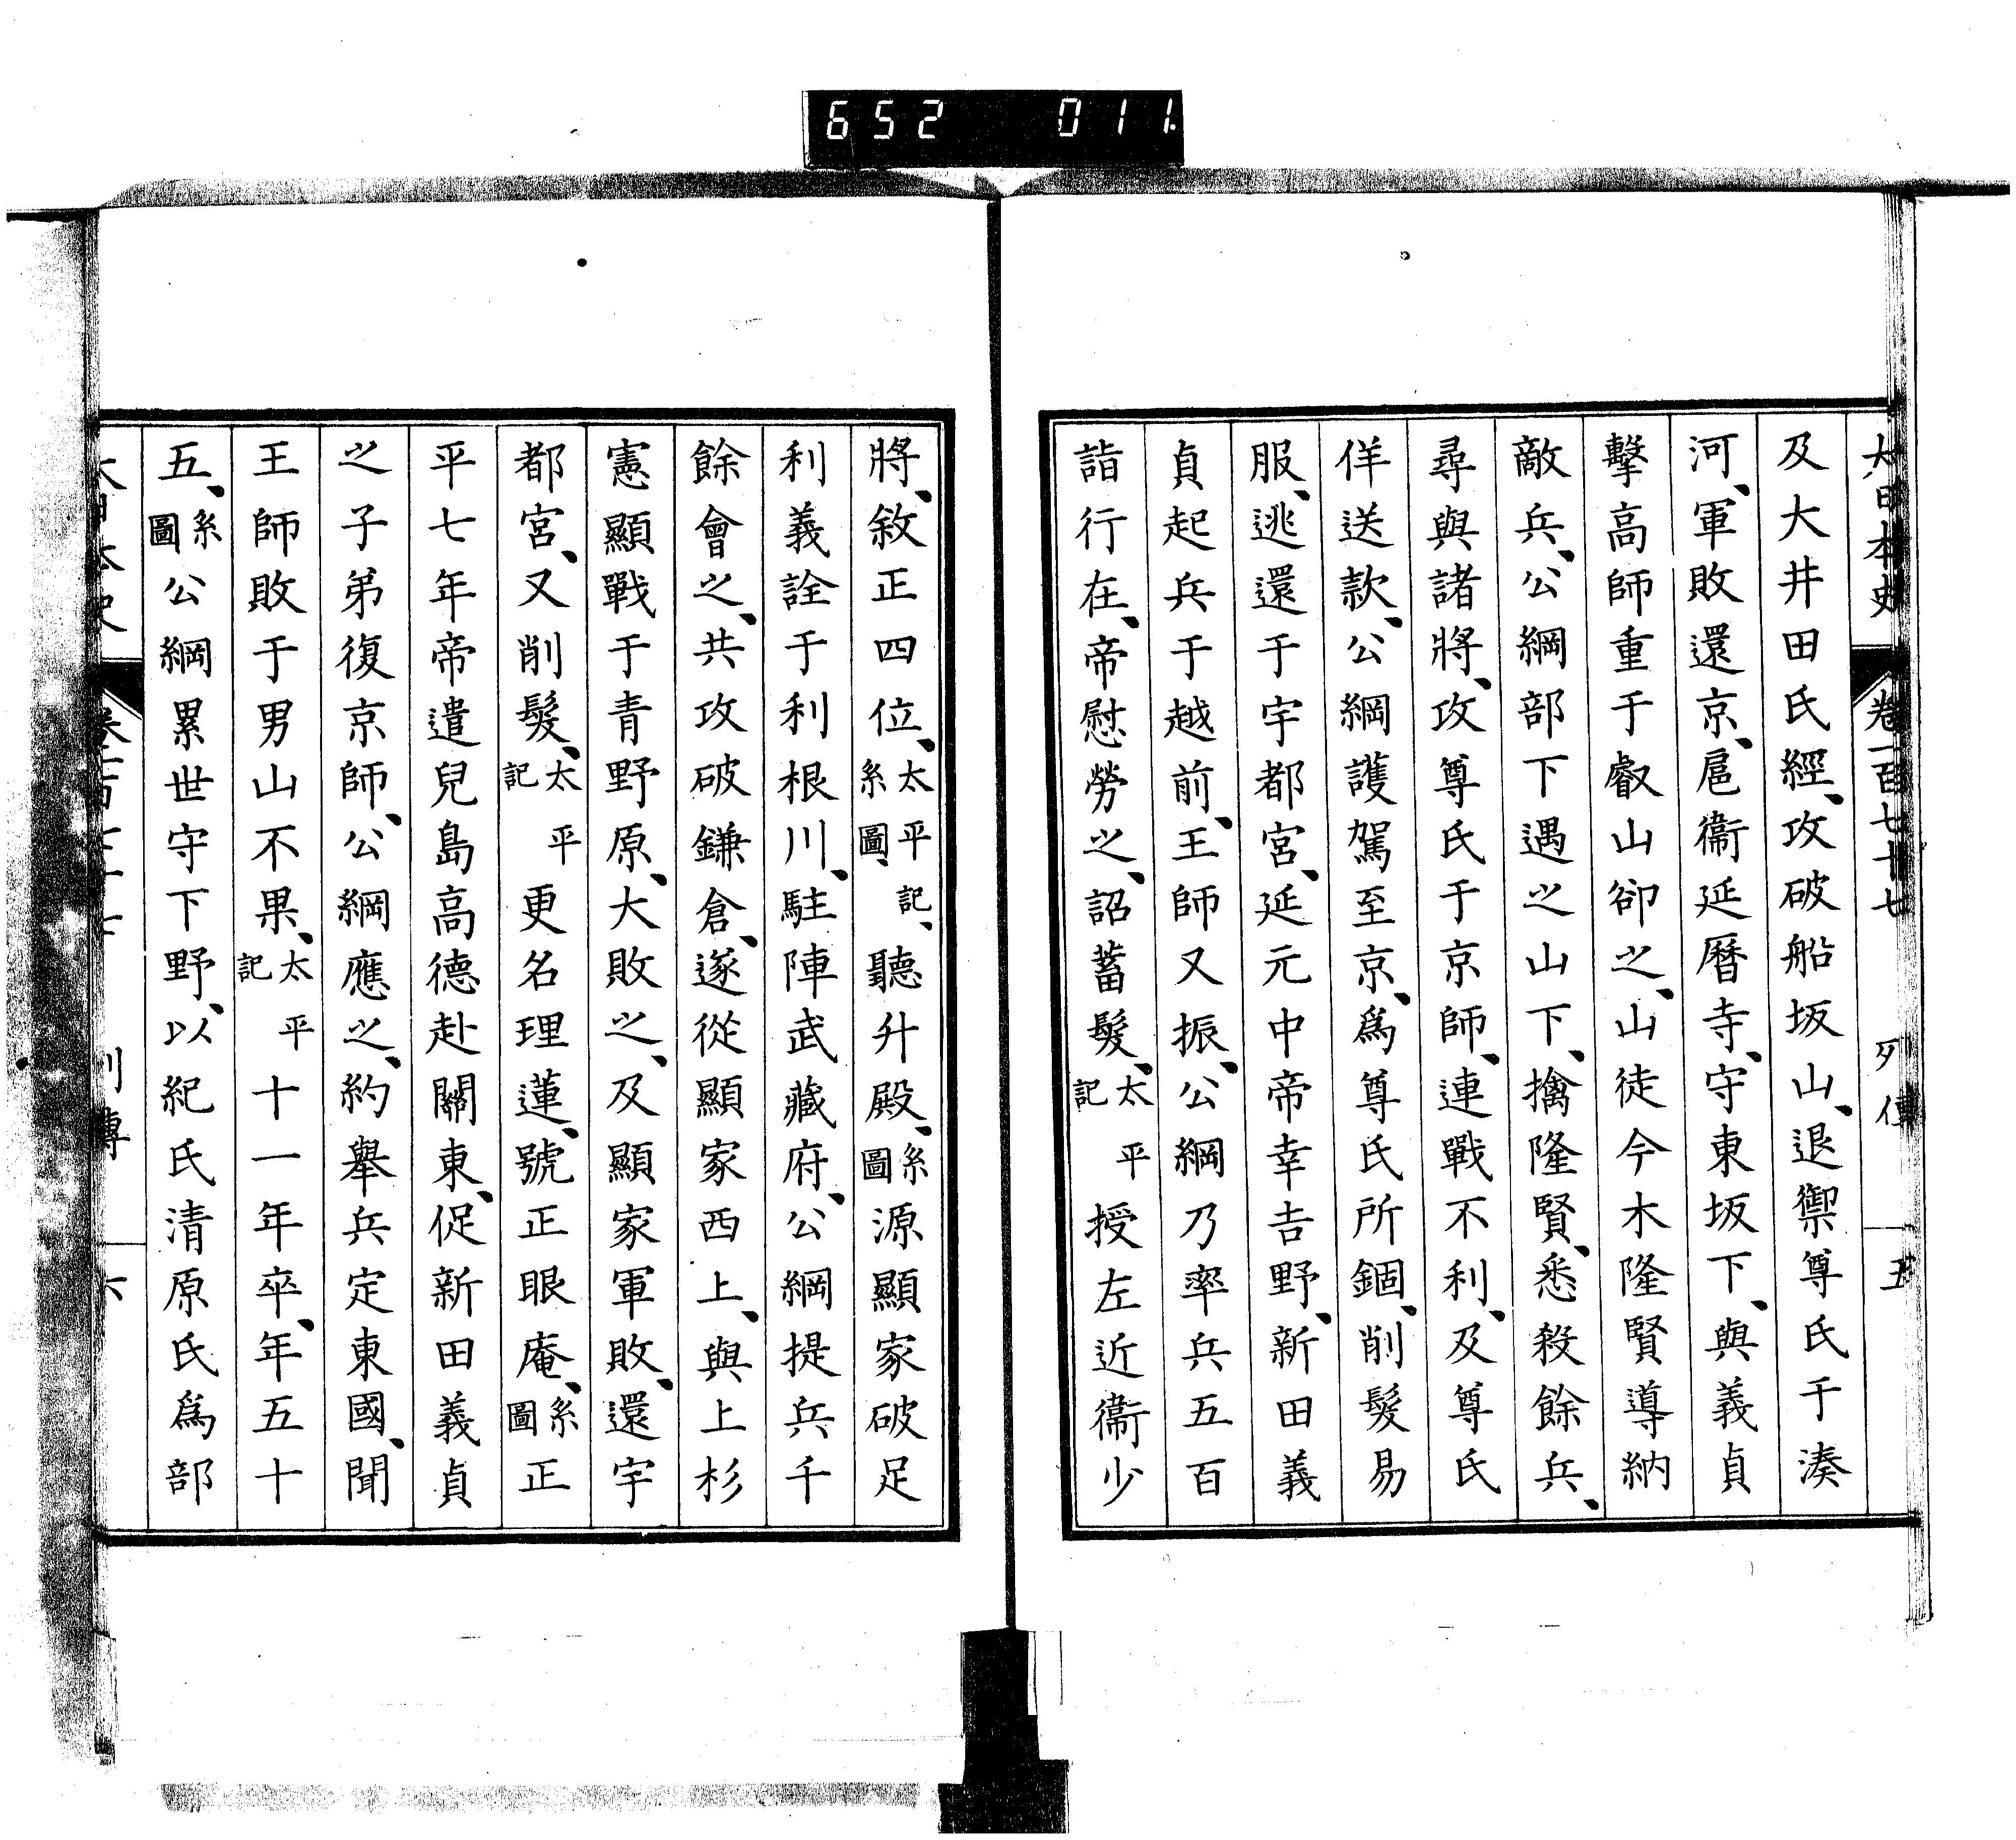 652 011
大日本史 卷一百七十七 列傳 五
及大井田氏經、攻破船坂山、退禦尊氏于湊
河、軍敗還京、扈衞延曆寺、守東坂下、與義貞
擊高師重于叡山卻之、山徒今木隆賢導納
敵兵、公綱部下遇之山下、擒隆賢、悉殺餘兵、
尋與諸將、攻尊氏于京師、連戰不利、及尊氏
佯送款、公綱護駕至京、爲尊氏所錮、削髮易
服、逃還于宇都宮、延元中帝幸吉野、新田義
貞起兵于越前、王師又振、公綱乃率兵五百
詣行在、帝慰勞之、詔蓄髮、太平記授左近衞少
將、敘正四位、太平記、系圖、聽升殿、系圖源顯家破足
利義詮于利根川、駐陣武藏府、公綱提兵千
餘會之、共攻破鎌倉、遂從顯家西上、與上杉
憲顯戰于青野原、大敗之、及顯家軍敗、還宇
都宮、又削髮、太平記更名理蓮、號正眼庵、系圖正
平七年帝遣兒島高德赴關東、促新田義貞
之子弟復京師、公綱應之、約舉兵定東國、聞
王師敗于男山不果、太平記十一年卒、年五十
五、系圖公綱累世守下野、以紀氏清原氏爲部